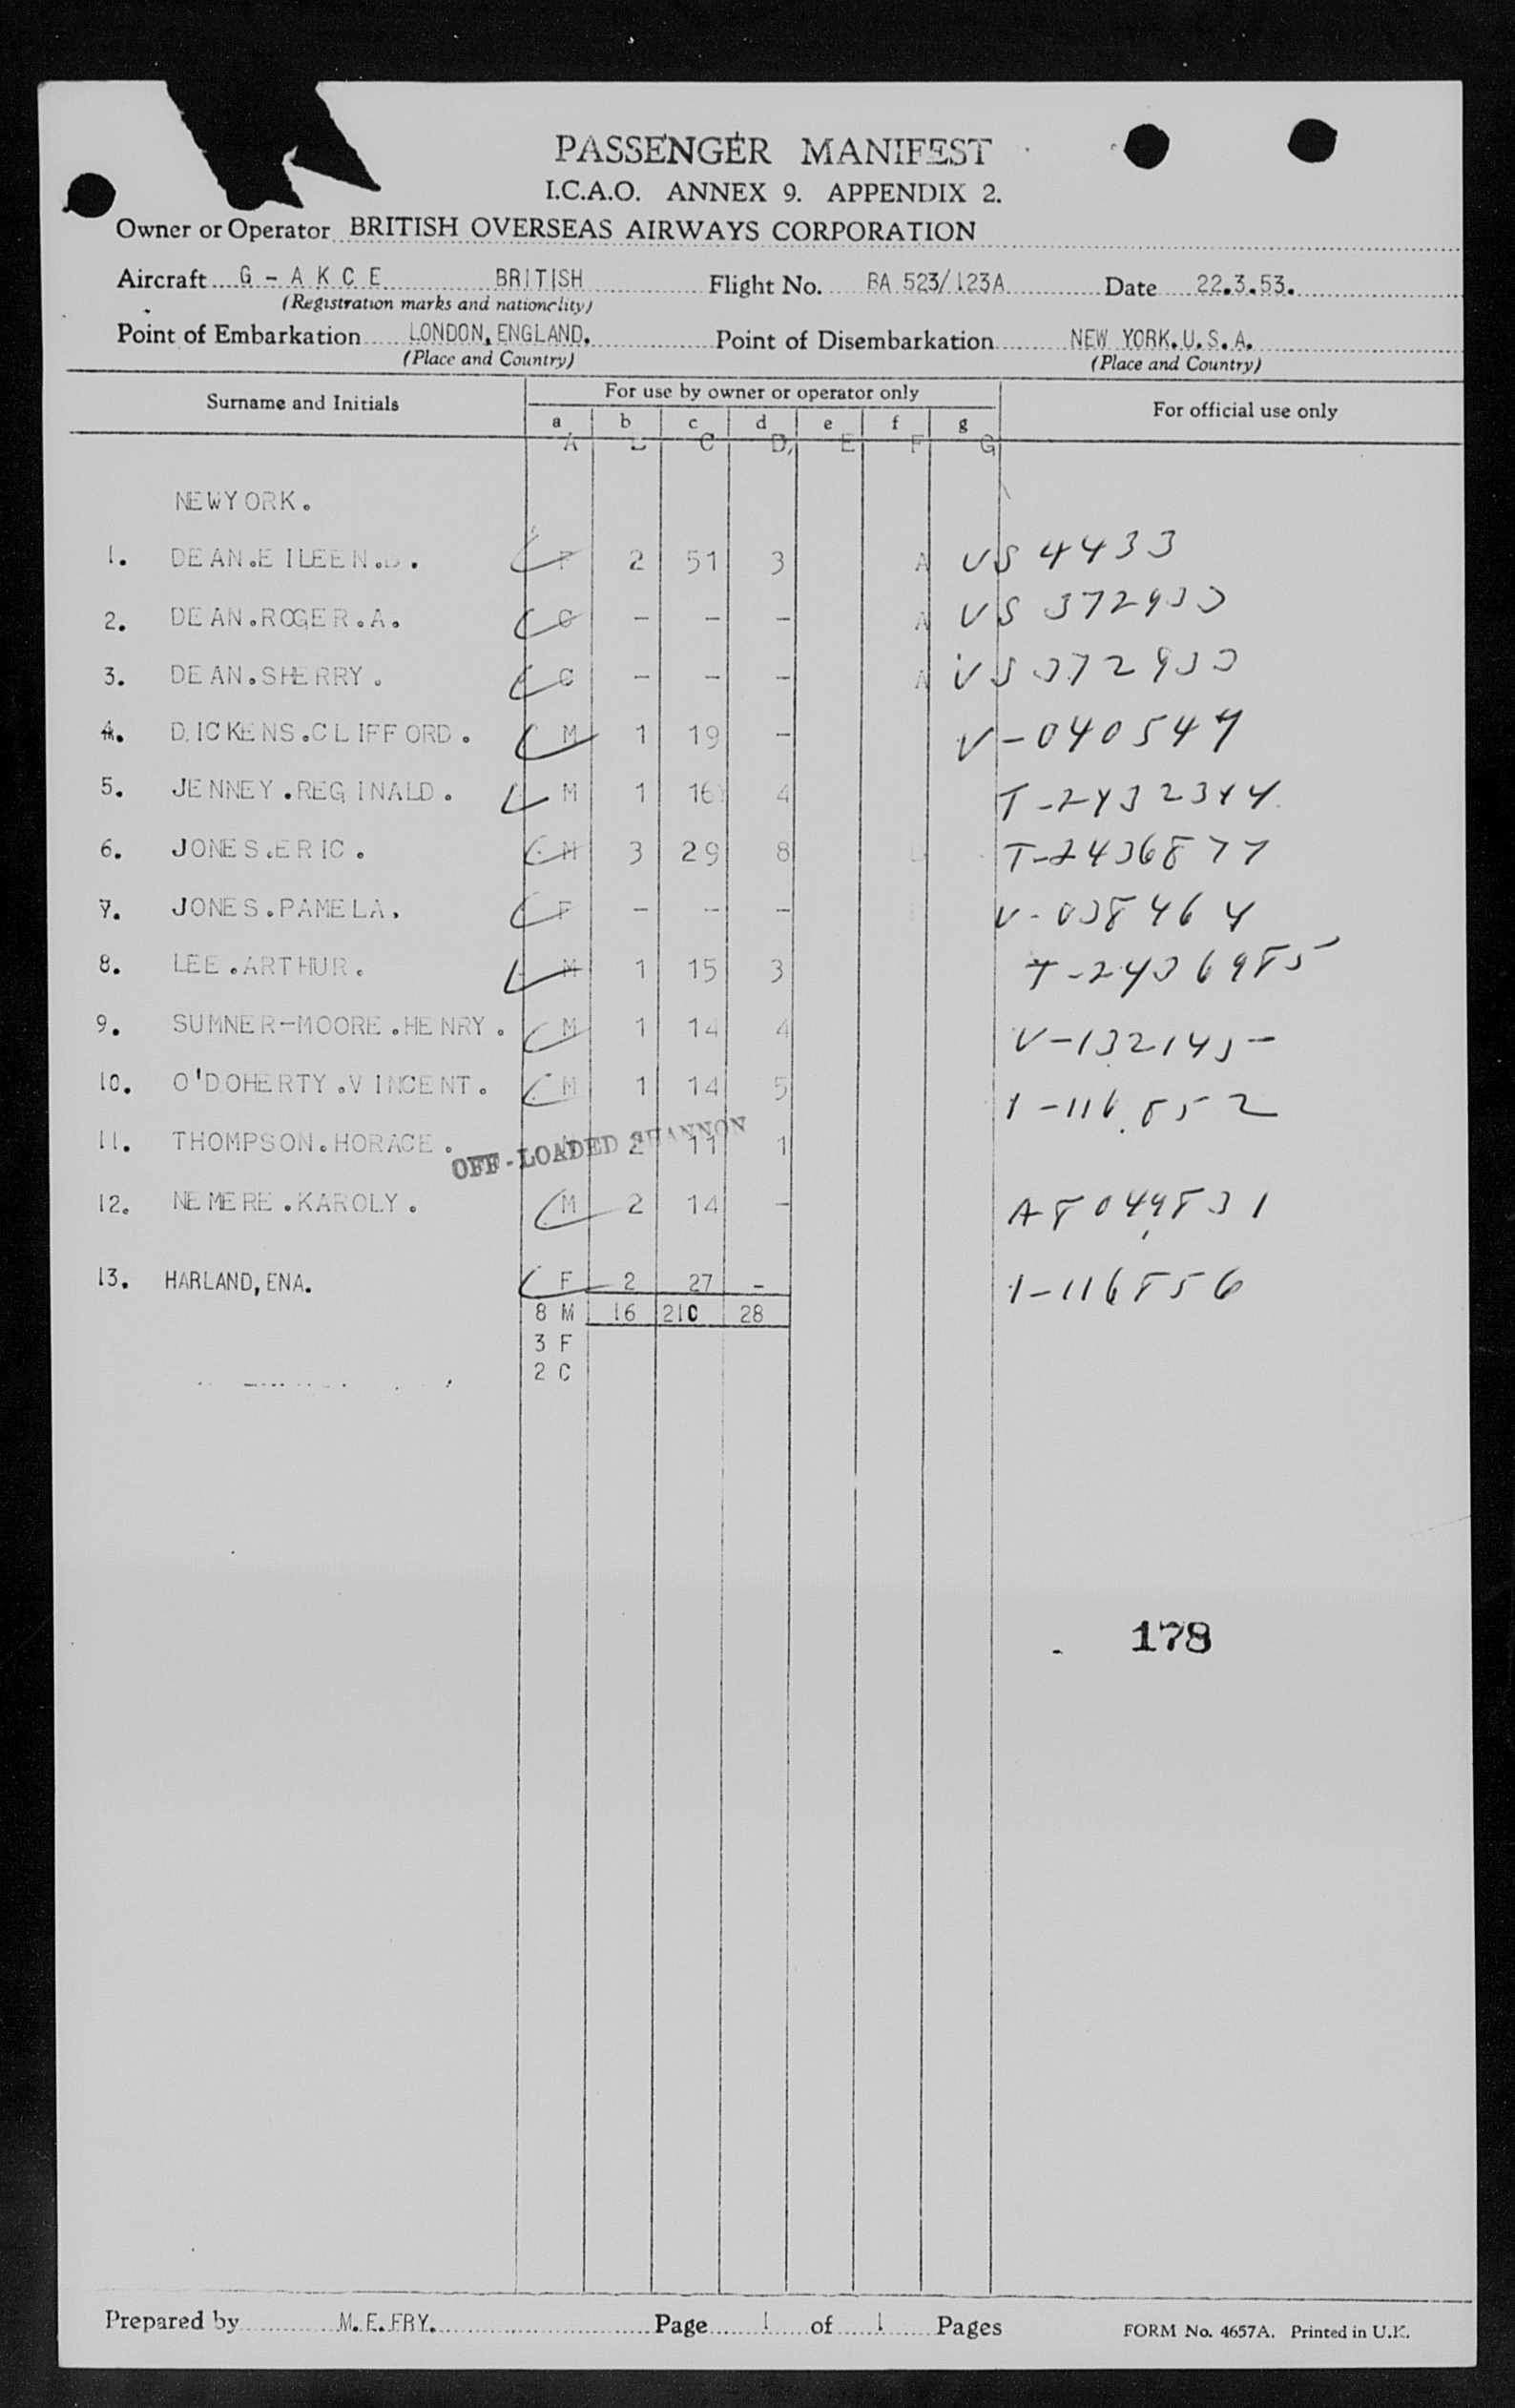 PASSENGER MANIFEST
I.C.A.O. ANNEX 9. APPENDIX 2.
Owner or Operator BRITISH OVERSEAS AIRWAYS CORPORATION
Aircraft G - A K C E BRITISH Flight No. BA 523/123A Date 22.3.53.
(Registration marks and nationality)
Point of Embarkation LONDON, ENGLAND. Point of Disembarkation NEW YORK.U.S.A.
(Place and Country) (Place and Country)
Surname and Initials For use by owner or operator only For official use only
a b c d e f g
A C D, E F G
NEWYORK.
1. DEAN.EILEEN. F 2 51 3 A VS 4433
2. DEAN.ROGER.A. C - - - A VS 372933
3. DEAN.SHERRY. C - - - A VS 372933
4. DICKENS.CLIFFORD. M 1 19 - V-040547
5. JENNEY.REGINALD. M 1 16 4
6. JONES.ERIC. M 3 29 8 T-2436877
7. JONES.PAMELA. F - - - V-038464
8. LEE.ARTHUR. M 1 15 3 T-2436985
9. SUMNER-MOORE.HENRY. M 1 14 4 V-132145
10. O'DOHERTY.VINCENT. M 1 14 5 1-116852
11. THOMPSON.HORACE. 2 11 1
OFF-LOADED SHANNON
12. NEMERE.KAROLY. M 2 14 - A8049831
13. HARLAND, ENA. F 2 27 - 1-116856
8 M 16 210 28
3 F
2 C
178
Prepared by M.E.FRY. Page 1 of 1 Pages FORM No. 4657A. Printed in U.K.